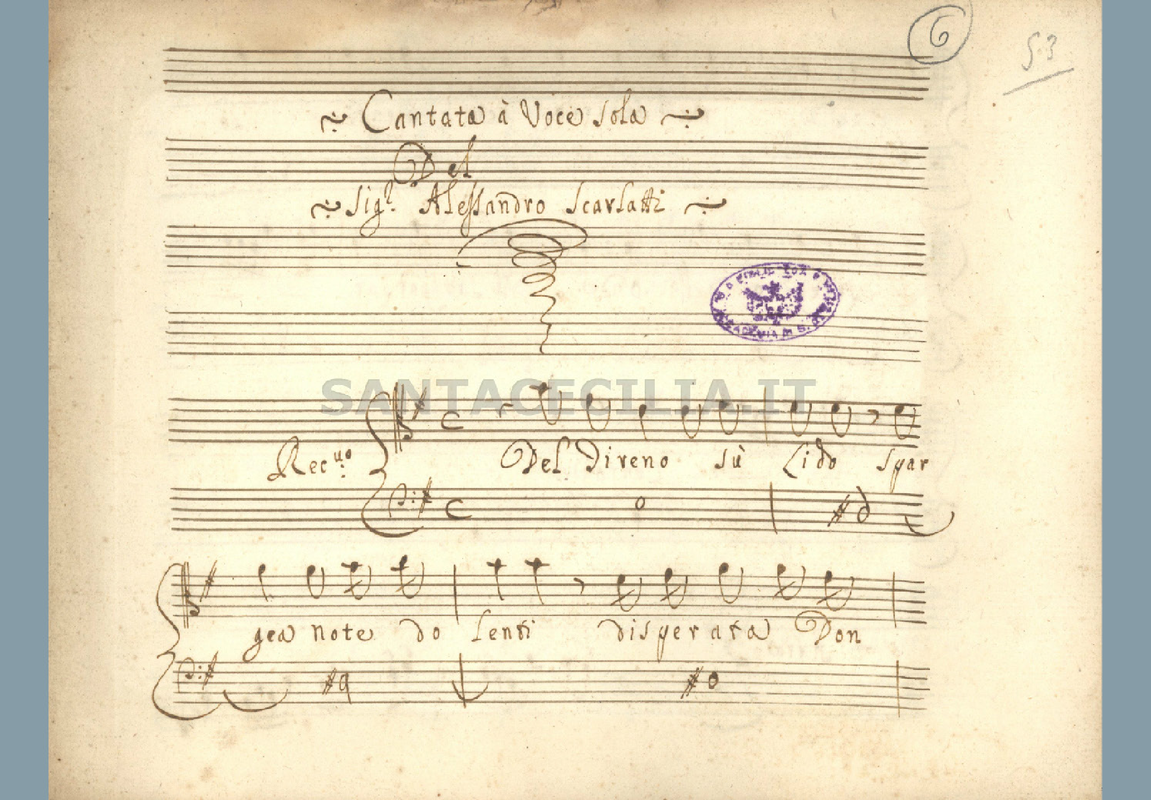 6
53
Cantata à Voce sola
Del
Sig.r Alessandro Scarlatti
SANTACECILIA.IT
Rec.vo Del Tireno sù Lido spar
gea note do lenti disperata Don